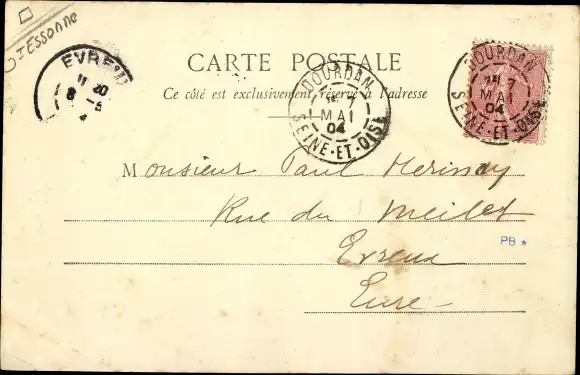 ESSONNE
EVREUX
11 20
8 -5
CARTE POSTALE
Ce côté est exclusivement réservé à l'adresse
DOURDAN
7
MAI
04
SEINE-ET-OISE
DOURDAN
7
MAI
04
SEINE-ET-OISE
Monsieur Paul
Rue du Meilet
Evreux
Eure
PB *